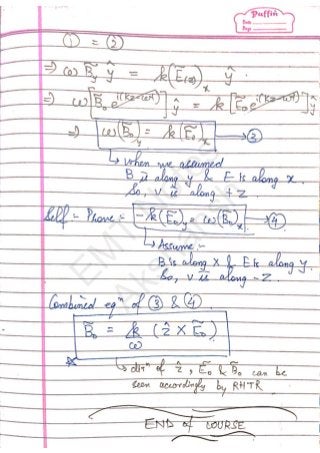 Puffin
Date
Page
① = ②
⇒ ω B̃y ŷ = k (Ẽ(z))x ŷ .
⇒ ω [B̃₀ e^i(kz-ωt)] ŷ = k [Ẽ₀ e^i(kz-ωt)] ŷ
⇒ ω(B̃₀)y = k(Ẽ₀)x → ③
↳ when we assumed
B is along y & E is along x.
So, v is along + Z.
Self - Prove :- -k(Ẽ₀)y = ω(B̃₀)x → ④
↳ Assume :-
B is along X & E is along Y.
So, v is along - Z.
Combined eqⁿ of ③ & ④.
B̃₀ = k/ω (ẑ × Ẽ₀)
↳ dirⁿ of ẑ, Ẽ₀ & B̃₀ can be
seen accordingly by RHTR.
END of COURSE